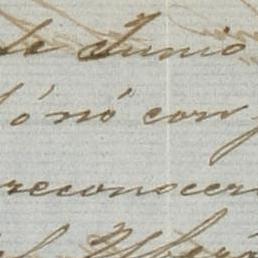 de Junio
ó nó con
reconocer